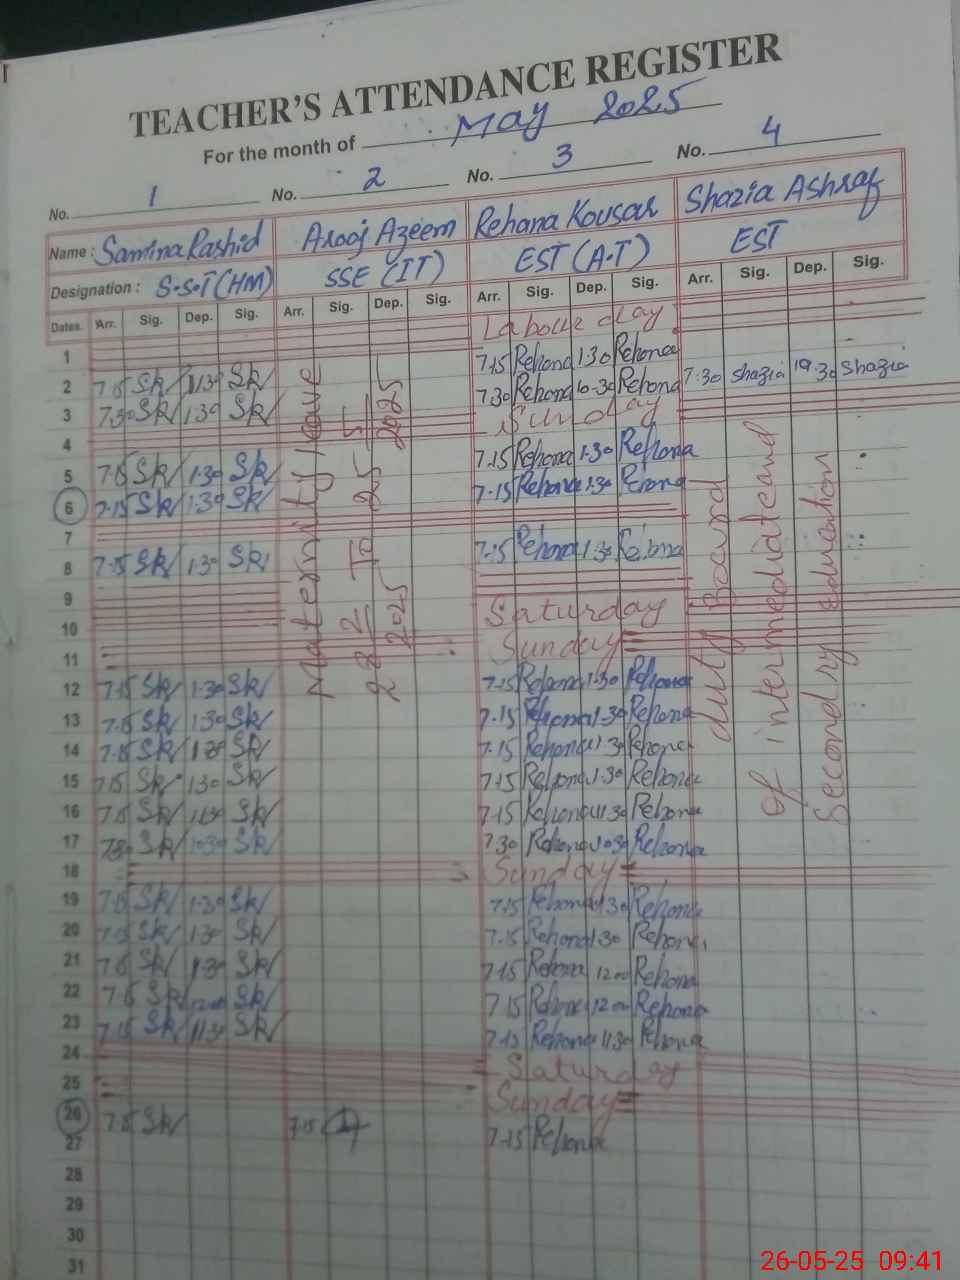 TEACHER'S ATTENDANCE REGISTER
For the month of May 2025
No. 1 No. 2 No. 3 No. 4
Name : Samina Rashid Arooj Azeem Rehana Kousar Shazia Ashraf
Designation : S.S.T (HM) SSE (IT) EST (A.T) EST
Dates. Arr. Sig. Dep. Sig. Arr. Sig. Dep. Sig. Arr. Sig. Dep. Sig. Arr. Sig. Dep. Sig.
Labour day
1 7.15 Rehana 1.30 Rehana
2 7.15 Sk 11.30 Sk 7.30 Rehana 10.30 Rehana 7:30 Shazia Shazia
3 7.30 Sk 1.30 Sk Sunday
4 7.15 Rehana 1.30 Rehana
5 7.15 Sk 1.30 Sk 7.15 Rehana 1.30
6 7.15 Sk 1.30 Sk
7 7.15 Rehana 1.30 Rehana
8 7.15 Sk 1.30 Sk
9 Saturday
10 Sunday
11
12 7.15 Sk 1.30 Sk 7.15 Rehana 1.30 Rehana
13 7.15 Sk 1.30 Sk 7.15 Rehana 1.30 Rehana
14 7.15 Sk 1.30 Sk 7.15 Rehana 1.30 Rehana
15 7.15 Sk 1.30 Sk 7.15 Rehana 1.30 Rehana
16 7.15 Sk 11.30 Sk 7.15 Rehana 11.30 Rehana
17 7.30 Sk 10.30 Sk 7.30 Rehana 10.30 Rehana
18 Sunday
19 7.15 Sk 1.30 Sk 7.15 Rehana 1.30 Rehana
20 7.15 Sk 1.30 Sk 7.15 Rehana 1.30 Rehana
21 7.15 Sk Sk 7.15 Rehana 12.00 Rehana
22 7.15 Sk 12.00 Sk 7.15 Rehana 12.00 Rehana
23 7.15 Sk 11.30 Sk 7.15 Rehana 11.30 Rehana
24 Saturday
25 Sunday
26 7.15 Sk 7.15
27 7.15 Rehana
28
29
30
31
Maternity leave
28 2 2025 To 25 5 2025
duty Board
of intermediate and
Secondry education
26-05-25 09:41